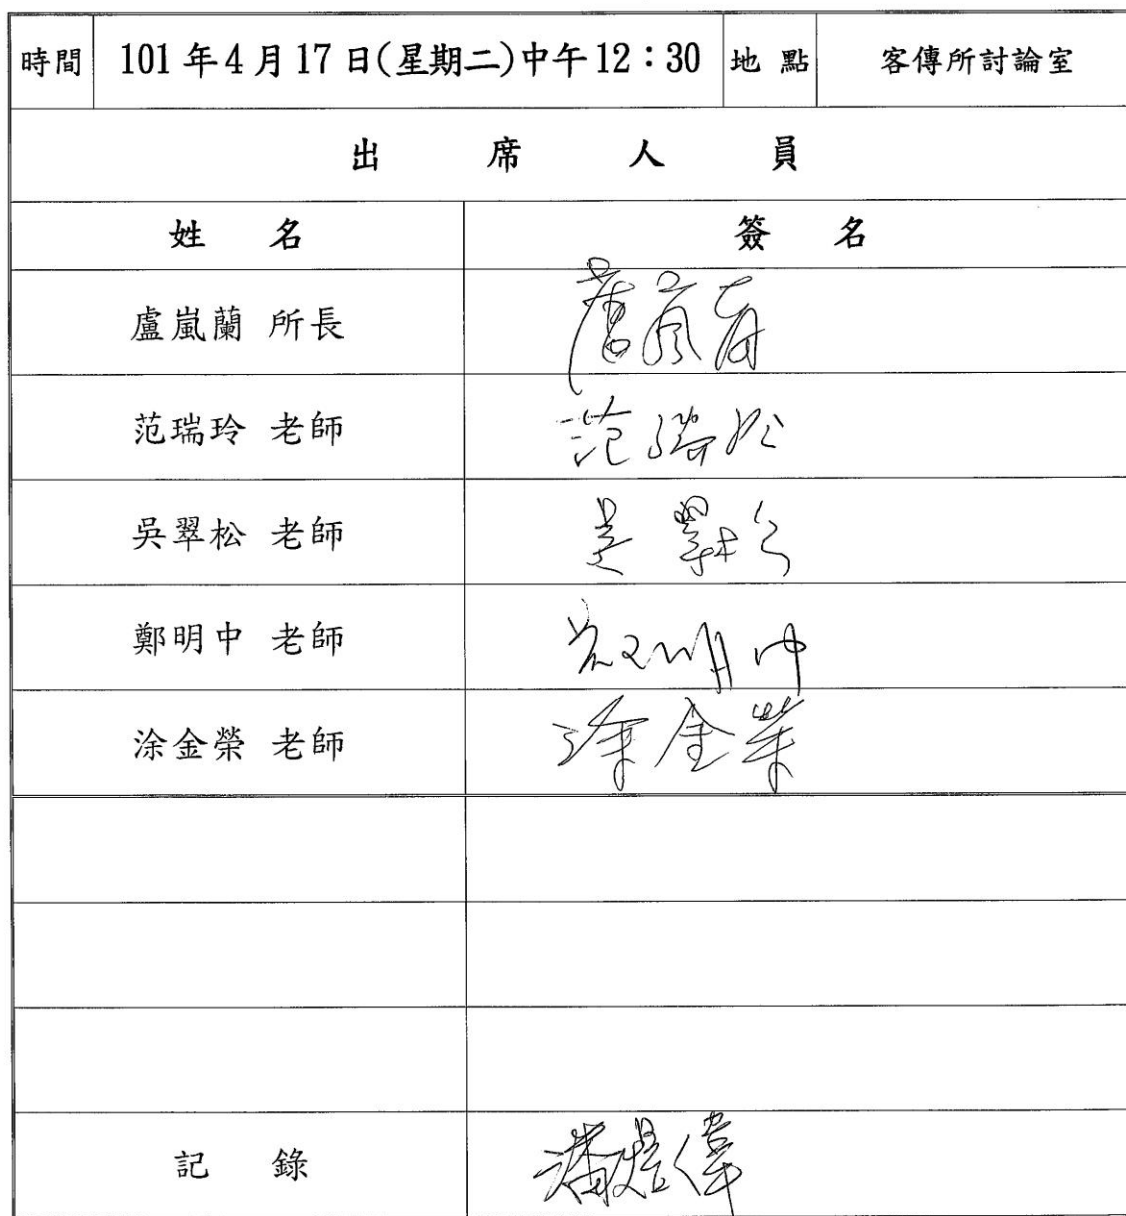 時間 101年4月17日(星期二)中午12：30 地點 客傳所討論室
出席人員
姓名 簽名
盧嵐蘭 所長
范瑞玲 老師 范瑞玲
吳翠松 老師 吳翠松
鄭明中 老師 鄭明中
涂金榮 老師 涂金榮
記錄